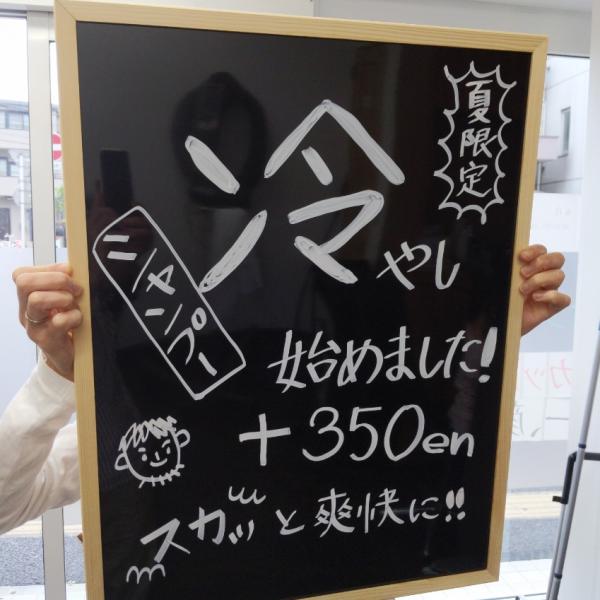 夏限定
冷やし
シャンプー
始めました!
+350en
スカッと爽快に!!